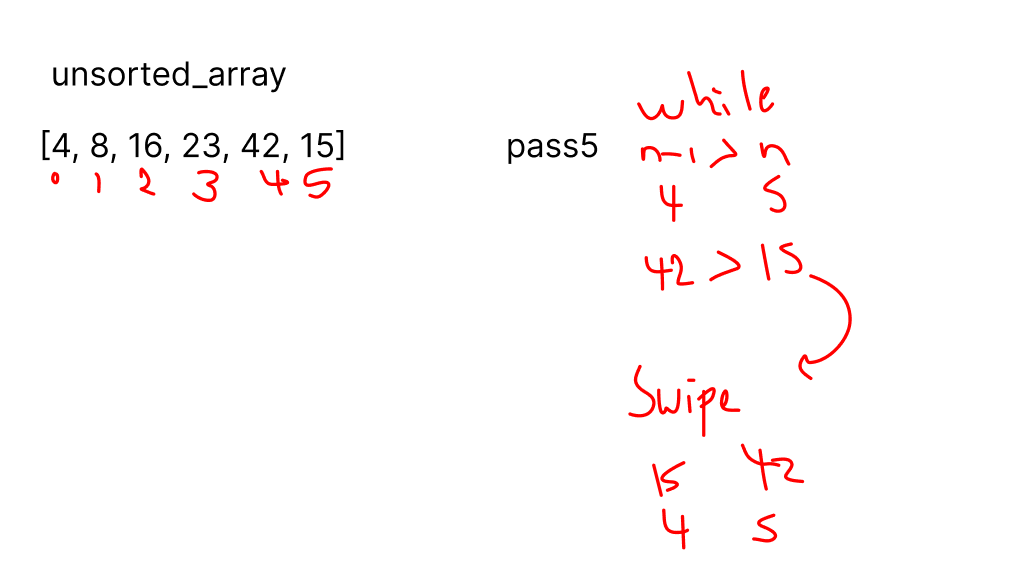 unsorted_array
[4, 8, 16, 23, 42, 15]
0 1 2 3 4 5
pass5
while
n-1 > n
4 5
42 > 15
Swipe
15 42
4 5